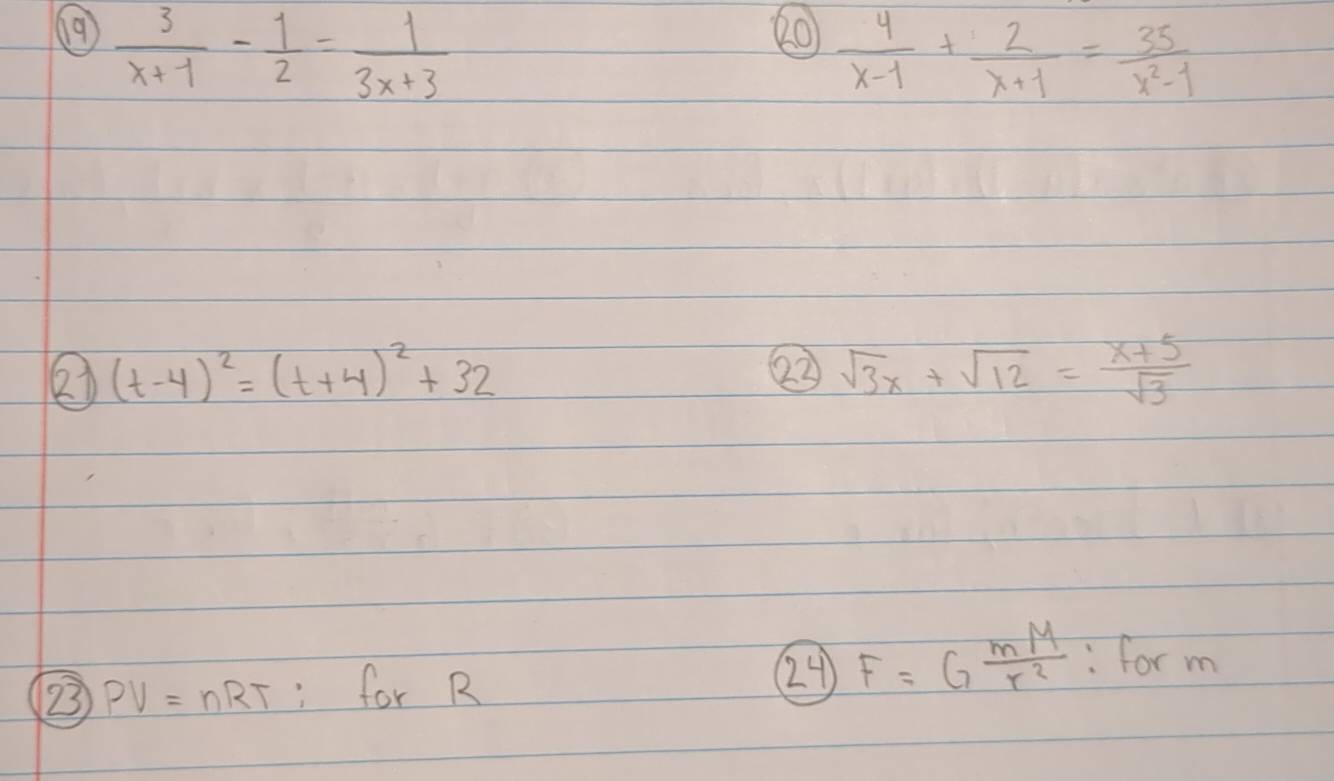 ⑲ 3/(x+1) - 1/2 = 1/(3x+3)
⑳ 4/(x-1) + 2/(x+1) = 35/(x²-1)
㉑ (t-4)² = (t+4)² + 32
㉒ √3x + √12 = (x+5)/√3
㉓ PV = nRT; for R
㉔ F = G mM/r² : for m